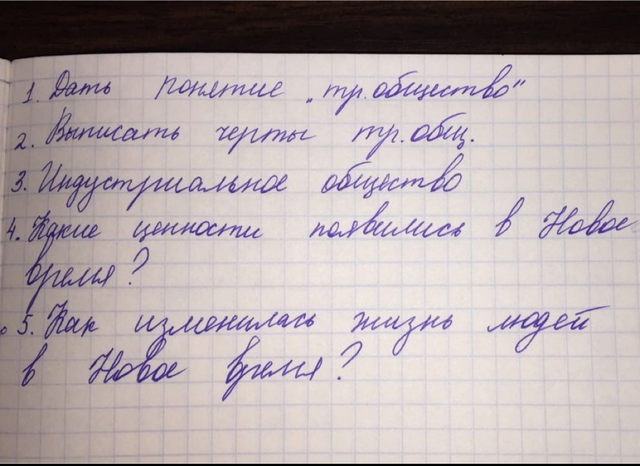 1. Дать понятие „тр. общество"
2. Выписать черты тр. общ.
3. Индустриальное общество
4. Какие ценности появились в Новое
время?
5. Как изменилась жизнь людей
в Новое время?